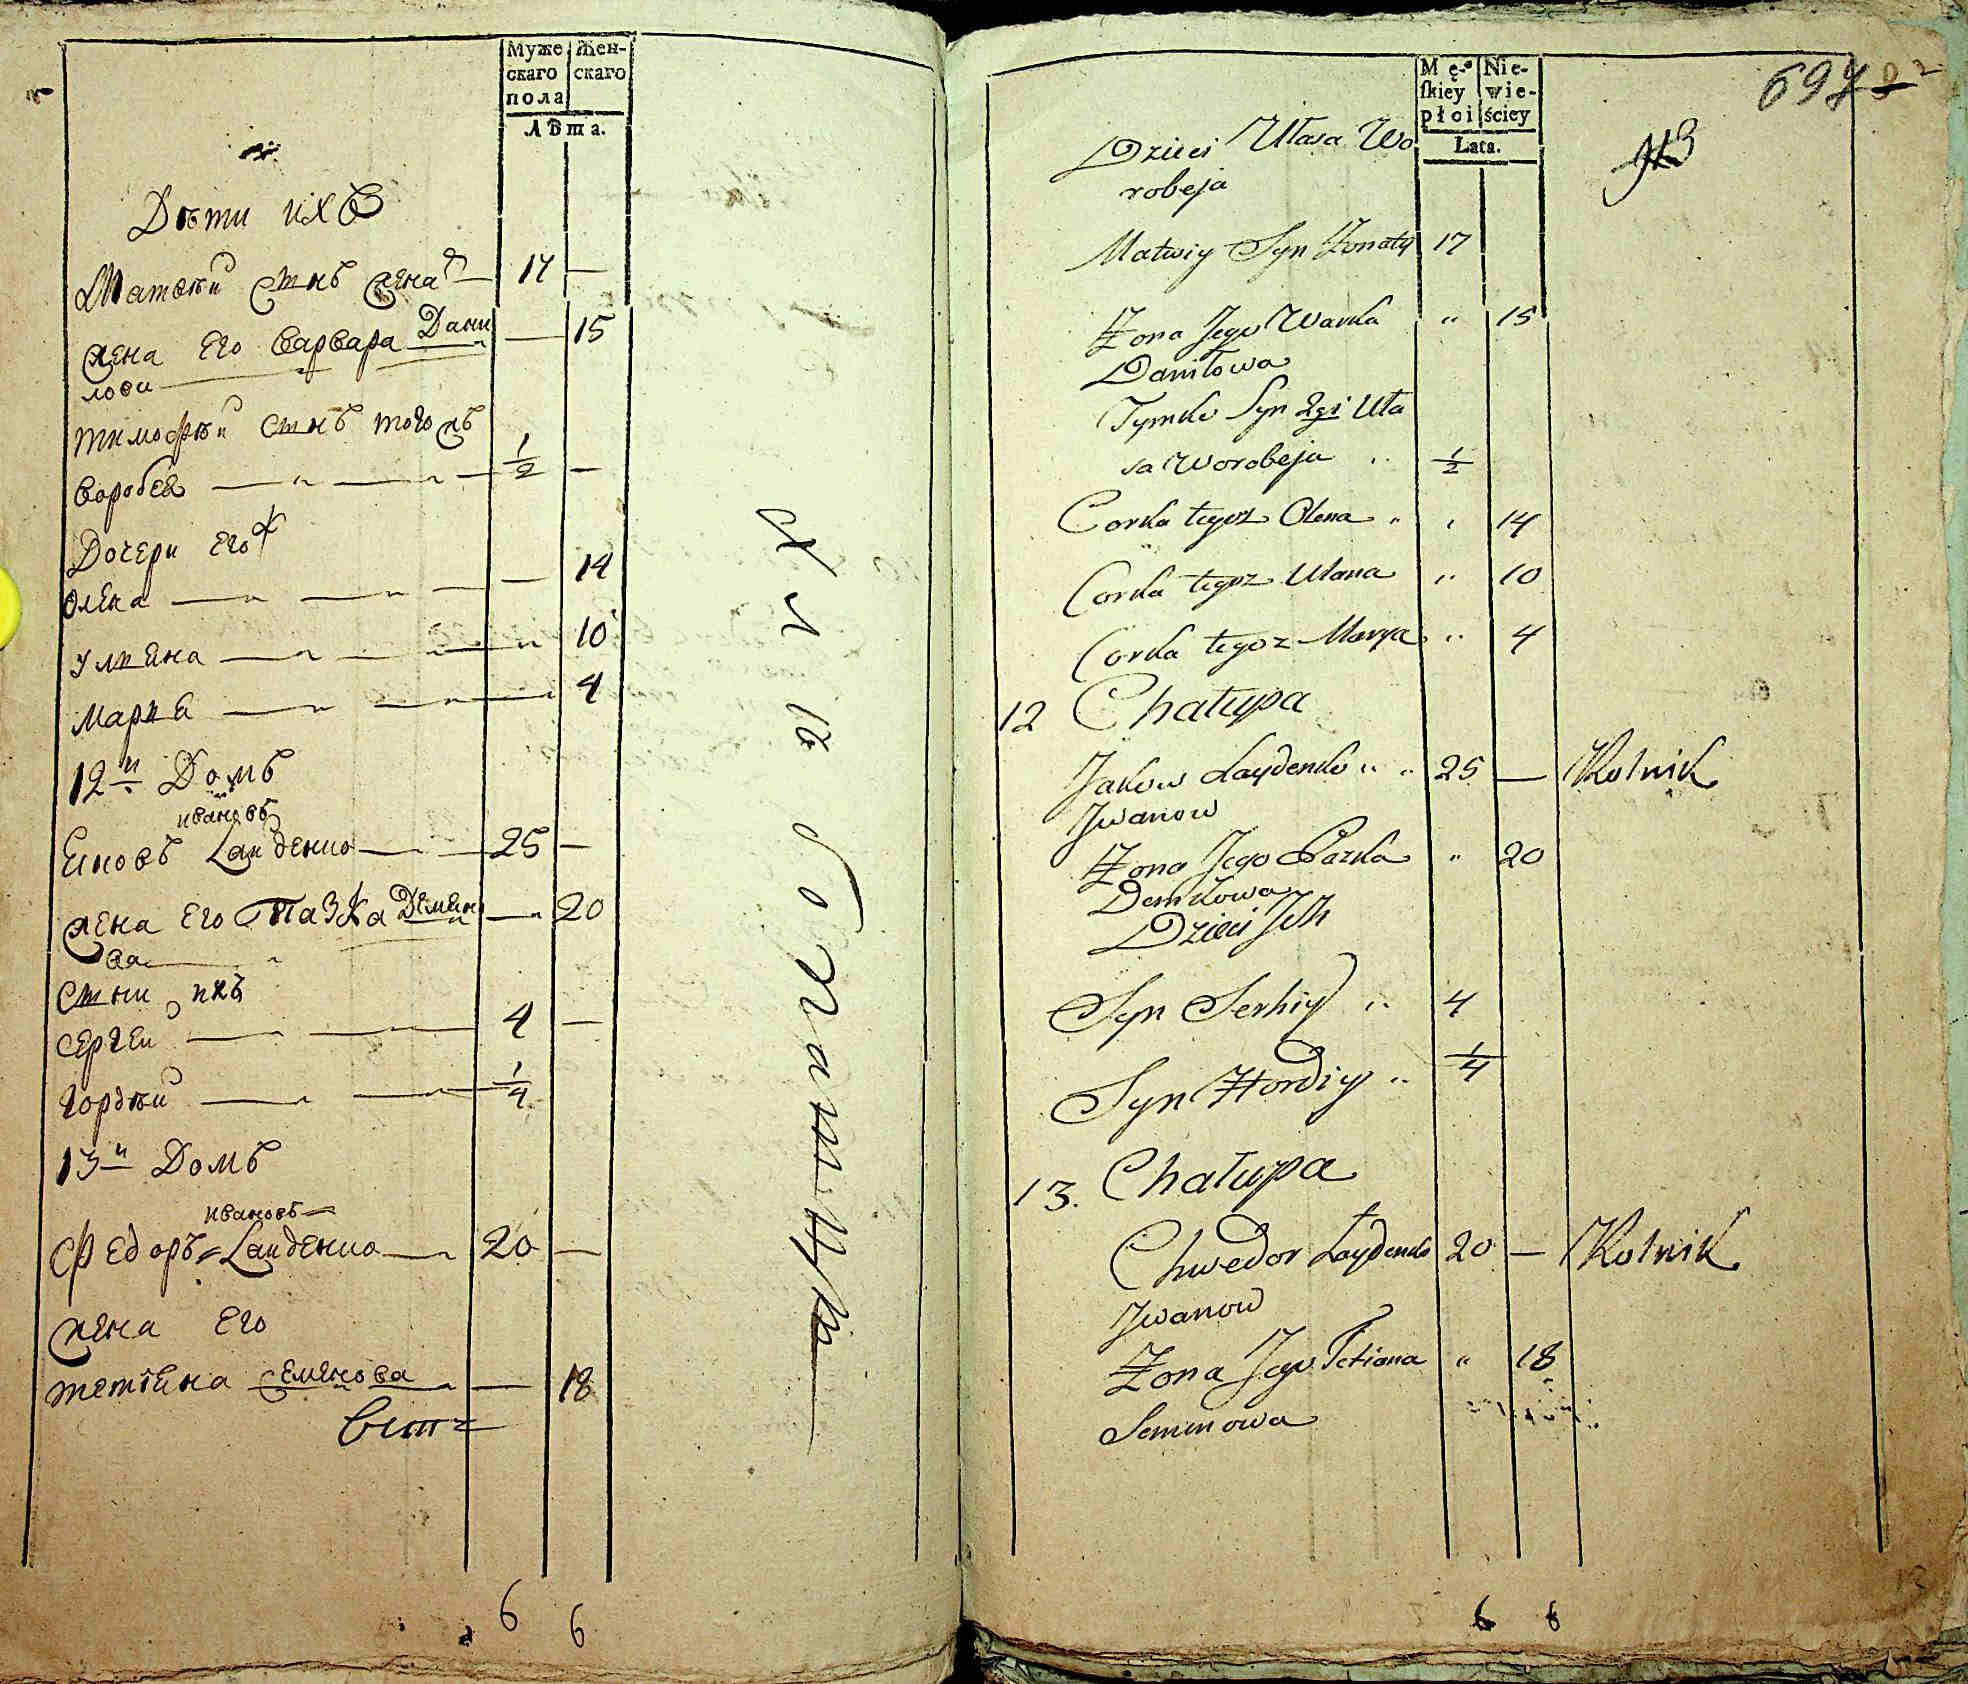 Муже
скаго
пола
Жен-
скаго
Лѣта.
Дѣти ихъ
Матвѣй сынъ женат 17 —
жена его варвара Дани — 15
лова
тимофѣй сынъ тогожъ
воробея 1/2 —
Дочери его
Олена — 14
улияна 10
Мария 4
12й Домъ
ивановъ
Яковъ Лайденко 25 —
жена его Пазка Демко — 20
ва
Сыни ихъ
Сергей 4 —
Гордѣй 1/4
13й Домъ
ивановъ
Федоръ Лайденко 20 —
жена его
тетіяна Семенова — 18
6 6
Mę-
skiey
płci
Nie-
wie-
ściey
Lata.
697
Dzieci Ułasa Wo
robeja
Matwiy Syn Żonaty 17
Żona Jego Warka " 15
Daniłowa
Tymko Syn 2gi Uła
sa Worobeja 1/2
Corka tegoż Olena " 14
Corka tegoż Ulana " 10
Corka tegoż Marya " 4
12 Chałupa
Jakow Łaydenko 25 — Rolnik
Jwanow
Żona Jego Pazka " 20
Demkowa
Dzieci Jch
Syn Serhiy 4
Syn Hordiy 1/4
13. Chałupa
Chwedor Łaydenko 20 — Rolnik
Jwanow
Żona Jego Tetiana " 18
Semenowa
6 6